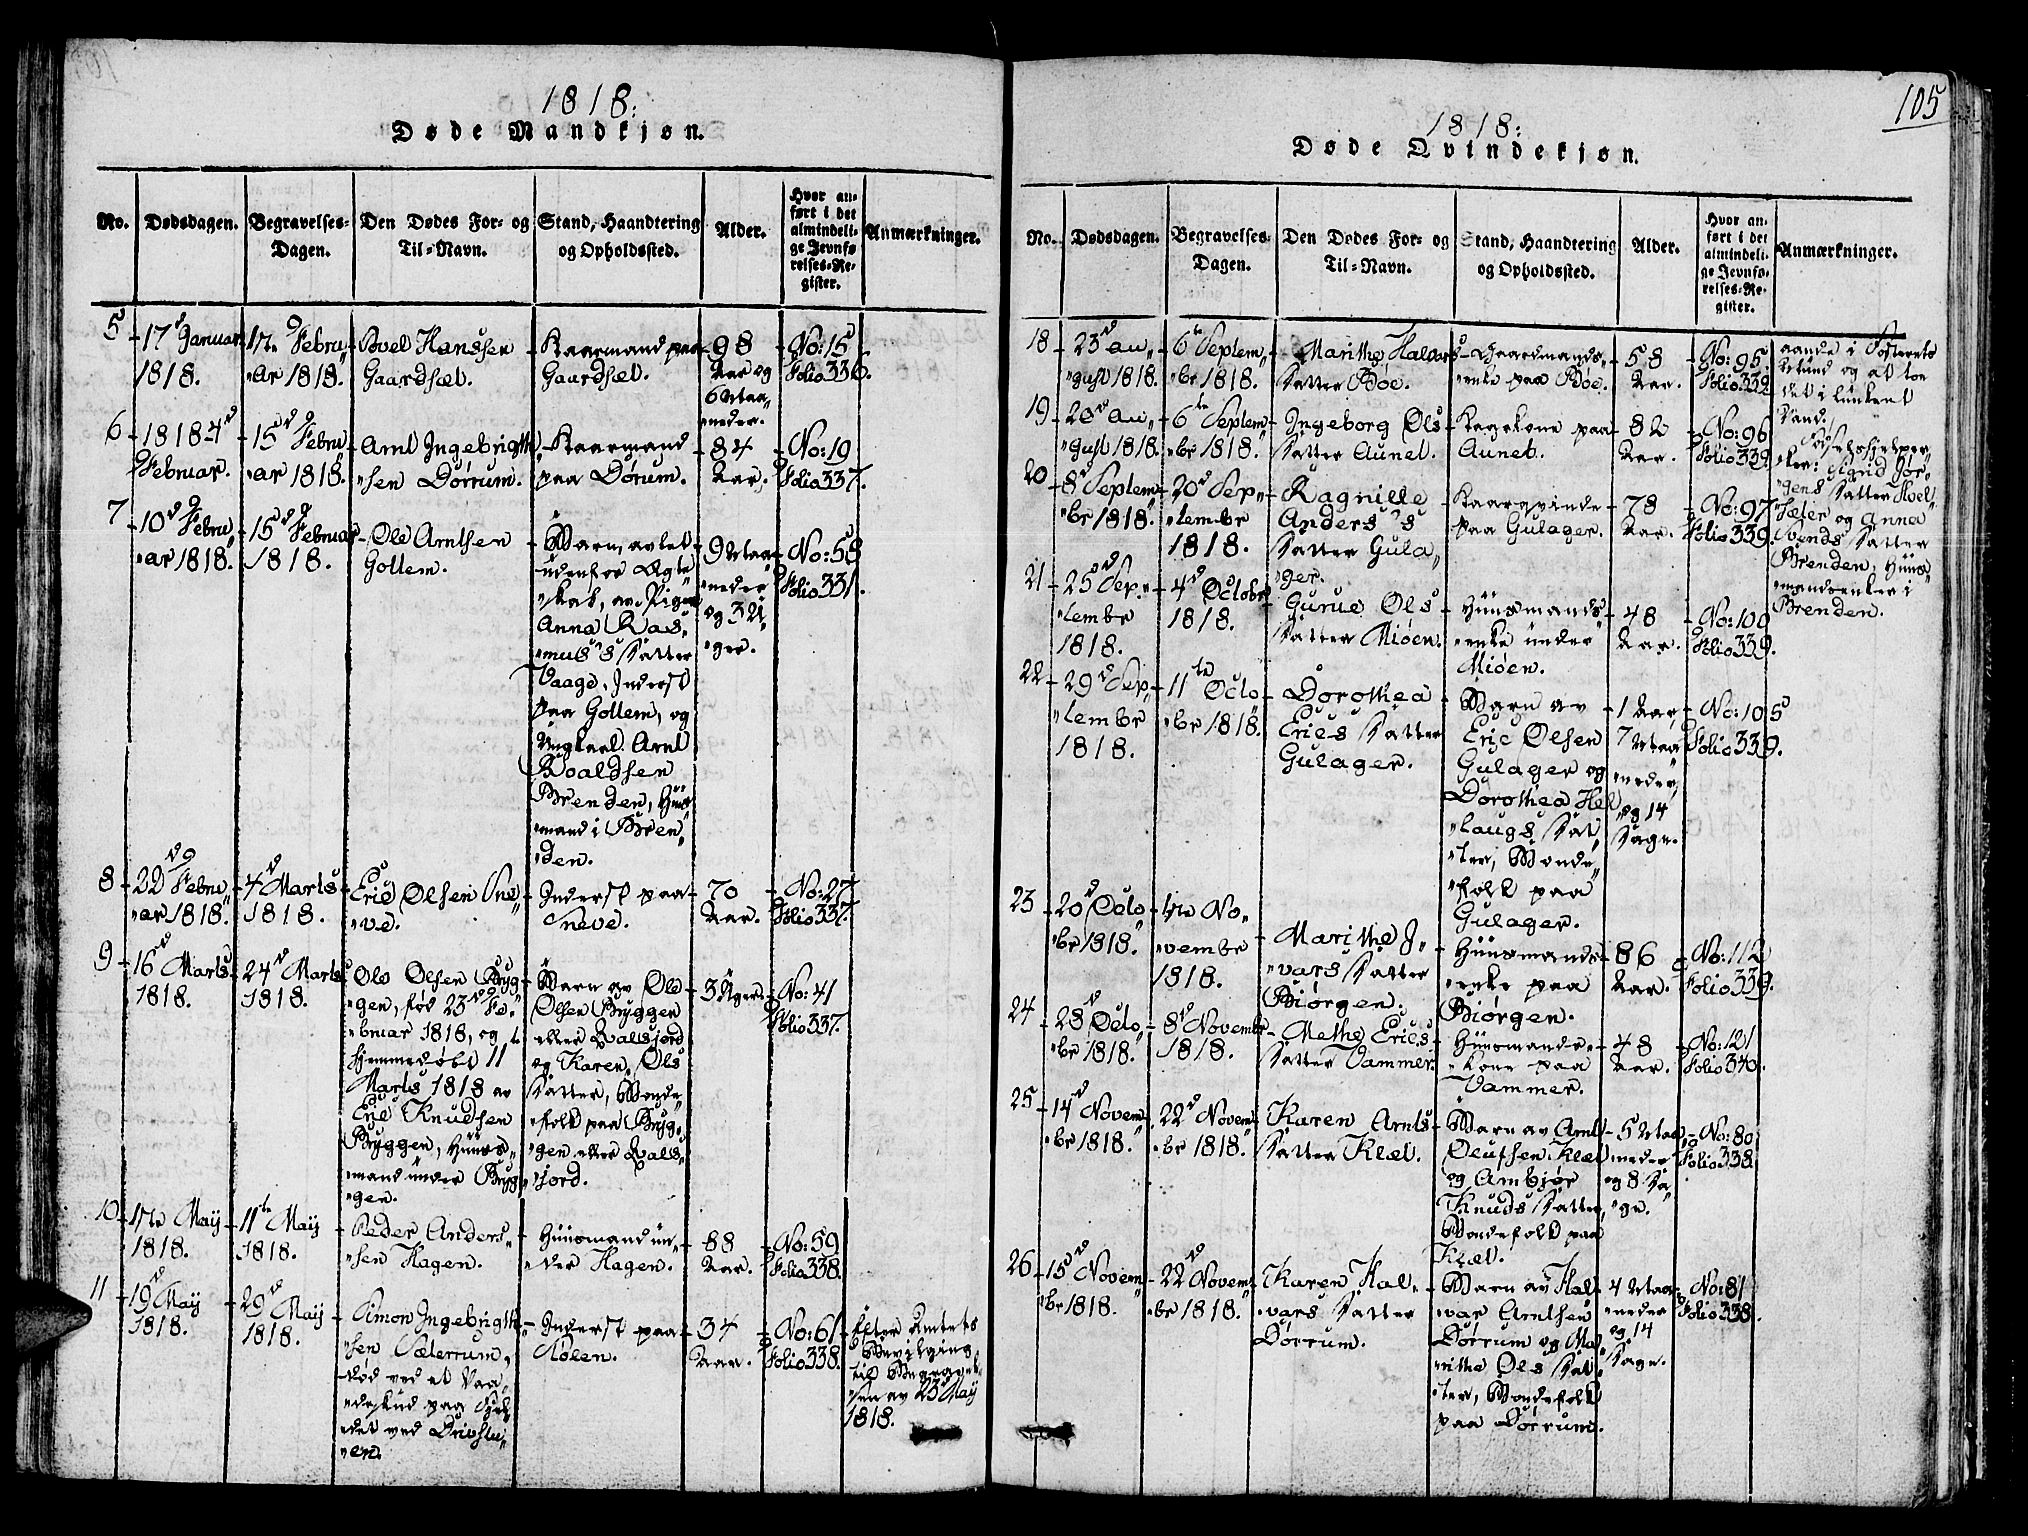 1818:
Døde Mandkjøn.
No. Dødsdagen. Begravelses-Dagen. Den Dødes For- og Til-Navn. Stand, Haandtering og Opholdssted. Alder. Hvor anført i det almindelige Jevnførelses-Register. Anmærkninger.
5 - 17d Januar
1818.
17de Febru„
„ar 1818.
Poel Hanssen
Gaardsæt.
Kaarmand paa
Gaardsæt.
98
Aar og
6 Maa„
„neder.
No: 15
Folio 336.
6 - 1818 4d
Februar.
15d Febru„
„ar 1818.
Arnt Ingebrigth„
„sen Dørrum.
Kaarmand
paa Dørum.
84
Aar.
No: 19
Folio 337.
7 - 10d Febru„
„ar 1818.
15d Februar
1818.
Ole Arntsen
Gollem.
Barn, avlet
udenfor Ægte„
„skab, av Pigen
Anna Ras„
„mus's Datter
Vaage, Inderst
paa Gollem, og
Ungkarl Arnt
Roaldsen
Brenden, Huus„
„mand i Bren„
„den.
9 Maa„
„neder
og 3 U„
„ger.
No: 58
Folio 331.
8 - 22d Febru„
„ar 1818.
4d Marts
1818.
Eric Olsen Sne„
„ve.
Inderst paa
Sneve.
70
Aar.
No: 27
Folio 337.
9 - 16d Marts
1818.
24d Marts
1818.
Ole Olsen Bryg„
„gen, fød 23d Fe„
„bruar 1818, og
hjemmedøbt 11te
Marts 1818 av
Eric Knudsen
Bryggen, Huus„
„mand under Bryg„
„gen.
Barn av Ole
Olsen Bryggen
eller Valsjord
og Karen Ols
Datter, Bonde„
„folk paa Bryg„
„gen eller Vals„
„jord.
3 Uger.
No: 41
Folio 337.
10 - 1ste Maij
1818.
11te Maij
1818.
Peder Anders„
„sen Hagen.
Huusmand un„
„der Hagen.
88
Aar.
No: 59
Folio 338.
11 - 19d Maij
1818.
29d Maij
1818.
Simon Ingebrigth„
„sen Sæterrum,
død ved et Vaa„
„deskud paa Fjel„
„det ved Drivstu„
„en.
Inderst paa
Aalen.
34
Aar.
No: 61
Folio 338.
Efter Amtets
Bevilging
til Begravel„
„sen av 23 Maij
1818.
105
1818:
Døde Qvindekjøn.
No. Dødsdagen. Begravelses-Dagen. Den Dødes For- og Til-Navn. Stand, Haandtering og Opholdssted. Alder. Hvor anført i det almindelige Jevnførelses-Register. Anmærkninger.
18 - 23d Au„
„gust 1818.
6te Septem„
„br 1818.
Marithe Halvors
Datter Bøe.
Gaardmands„
„enke paa Bøe.
58
Aar.
No: 95.
Folio 339.
19 - 28d Au„
„gust 1818.
6te Septem„
„br 1818.
Ingeborg Ols
Datter Aunet.
Kagekone paa
Aunet.
82
Aar.
No: 96
Folio 339.
20 - 8d Septem„
„br 1818.
20d Sep„
„tembr
1818.
Ragnille
Anders's
Datter Gula„
„ger.
Kaarqvinde
paa Gulager.
78
Aar.
No: 97
Folio 339.
21 - 25d Sep„
„tembr
1818.
4d Octobr
1818.
Gurue Ols
Datter Miøen.
Huusmands„
„enke under
Miøen.
48
Aar.
No: 100
Folio 339.
22 - 29d Sep„
„tembr
1818.
11te Octo„
„br 1818.
Dorothea
Erics Datter
Gulager.
Barn av
Eric Olsen
Gulager og
Dorothea Hel„
„laugs Dat„
„ter, Bonde„
„folk paa
Gulager.
1 Aar,
7 Maa„
„neder,
og 14
Dage.
No: 105
Folio 339.
23 - 20d Octo„
„br 1818.
1ste No„
„vembr
1818.
Marithe I„
„vars Datter
Biørgen.
Huusmands„
„enke paa
Biørgen.
86
Aar.
No: 112
Folio 339.
24 - 28d Octo„
„br 1818.
8d Novembr
1818.
Methe Erics
Datter Vammer.
Huusmands„
„kone paa
Vammer.
48
Aar.
No: 121
Folio 340.
25 - 14d Novem„
„br 1818.
22d Novem„
„br 1818.
Karen Arnts
Datter Klæt.
Barn av Arnt
Olufsen Klæt
og Ambjør
Knuds Datter,
Bondefolk paa
Klæt.
5 Maa„
„neder
og 8 Da„
„ge.
No: 80
Folio 338.
26 - 15d Novem„
„br 1818.
22d Novem„
„br 1818.
Karen Hal„
„vars Datter
Dørrum.
Barn av Hal„
„var Arntsen
Dørrum og Ma„
„rithe Ols Dat„
„ter, Bondefolk
paa Dørrum.
4 Maa„
„neder
og 14
Dage.
No: 81
Folio 338.
aande i Fosterets
Mund og at toe
det i lunkent
Vand.
Fødselshjelper„
„sker: Sigrid Jør„
„gens Datter Hvel„
„sæter og Anna
Svends Datter
Brenden, Huus„
„mandsenker i
Brenden.